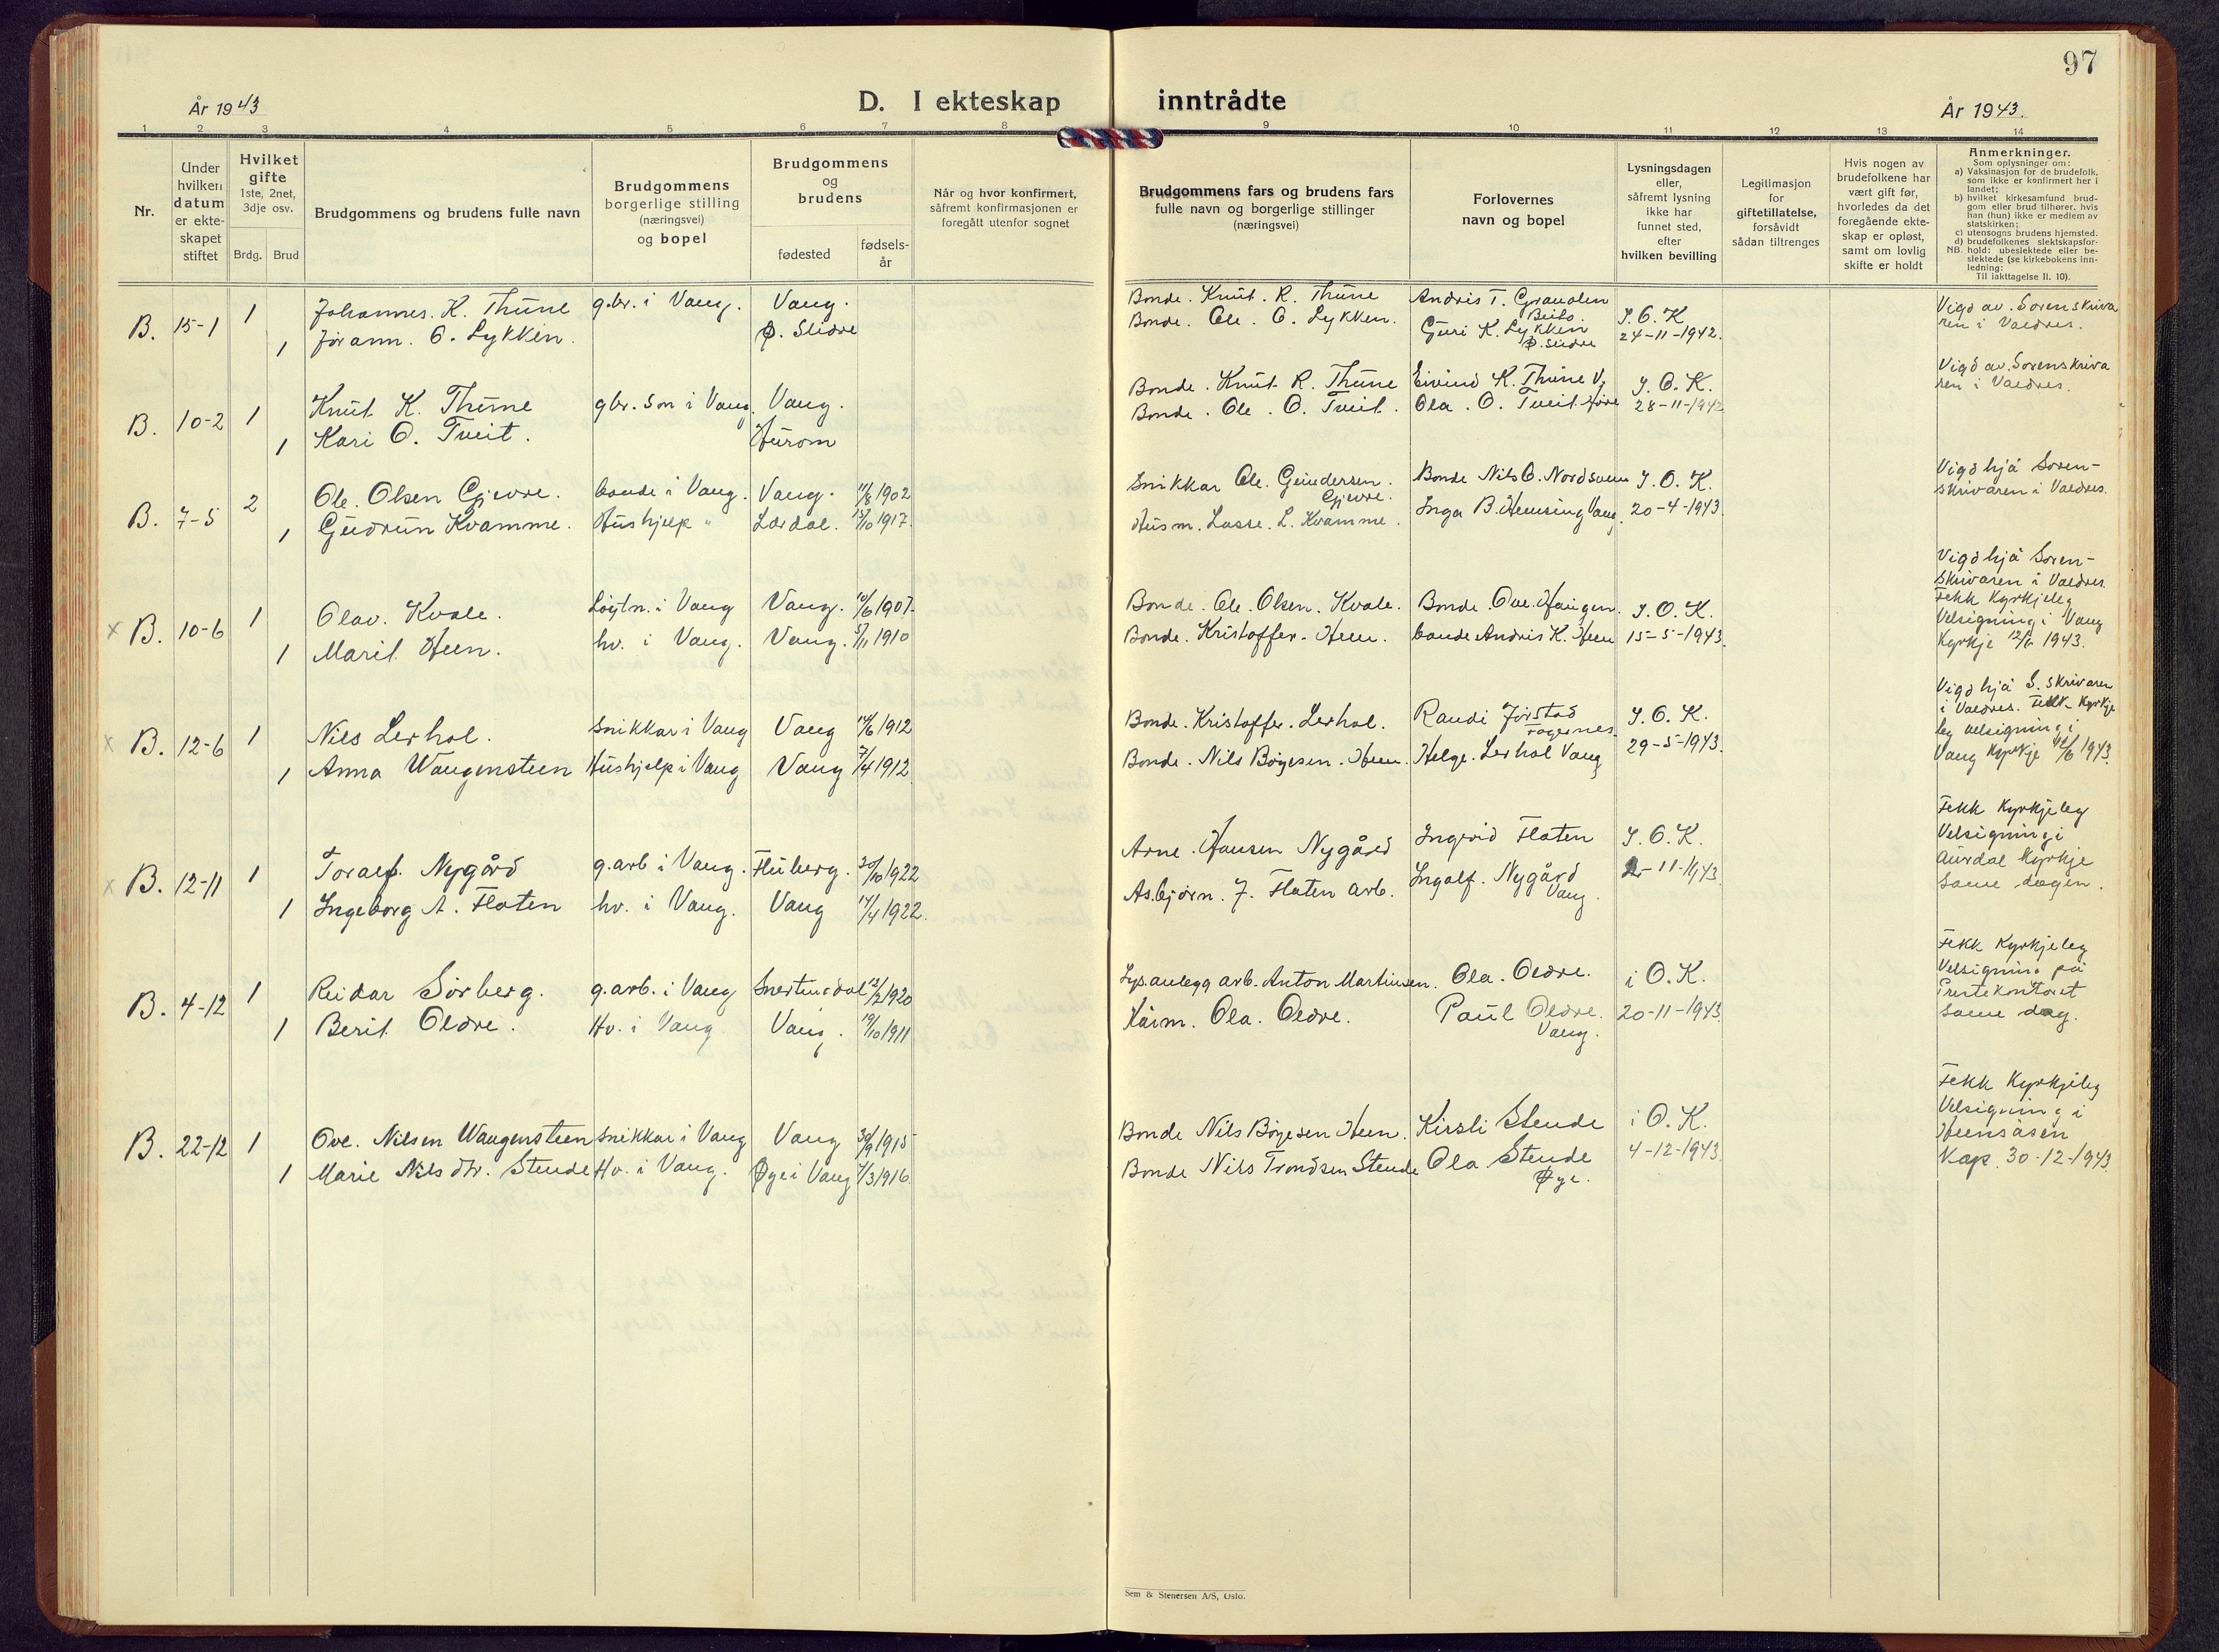 97
År 1943
D. I ekteskap inntrådte
År 1943.
1 2 3 4 5 6 7 8 9 10 11 12 13 14
Nr.
Under
hvilken
datum
er ekte-
skapet
stiftet
Hvilket
gifte
1ste, 2net,
3dje osv.
Brdg. Brud
Brudgommens og brudens fulle navn
Brudgommens
borgerlige stilling
(næringsvei)
og bopel
Brudgommens
og
brudens
fødested
fødsels-
år
Når og hvor konfirmert,
såfremt konfirmasjonen er
foregått utenfor sognet
Brudgommens fars og brudens fars
fulle navn og borgerlige stillinger
(næringsvei)
Forlovernes
navn og bopel
Lysningsdagen
eller,
såfremt lysning
ikke har
funnet sted,
efter
hvilken bevilling
Legitimasjon
for
giftetillatelse,
forsåvidt
sådan tiltrenges
Hvis nogen av
brudefolkene har
vært gift før,
hvorledes da det
foregående ekte-
skap er opløst,
samt om lovlig
skifte er holdt
Anmerkninger.
Som oplysninger om:
a) Vaksinasjon for de brudefolk,
som ikke er konfirmert her i
landet;
b) hvilket kirkesamfund brud-
gom eller brud tilhører, hvis
han (hun) ikke er medlem av
statskirken;
c) utensogns brudens hjemsted.
d) brudefolkenes slektskapsfor-
NB. hold: ubeslektede eller be-
slektede (se kirkebokens inn-
ledning:
Til iakttagelse II. 10).
B. 15-1 1 Johannes. K. Thune g.br. i Vang. Vang.
1 Jørann. O. Lykken. Ø. Slidre
Bonde. Knut. R. Thune
Bonde. Ole. O. Lykken.
Andris T. Granolen
Beito.
Guri K. Lykken
Ø. Slidre
J. O. K
24-11-1942.
Vigd av. Sorenskriva
ren i Valdres.
B. 10-2 1 Knut K. Thune gbr. son i Vang. Vang.
1 Kari O. Tveit. Hurom
Bonde. Knut R. Thune
Bonde. Ole. O. Tveit.
Eivind K. Thune V.
Ola. O. Tveit. Høre
J. O. K.
28-11-1942
Vigd av. Sorenskriva
ren i Valdres.
B. 7-5 2 Ole. Olsen Gjevre. bonde i Vang. Vang. 11/8 1902
1 Gudrun Kvamme. Hushjelp " Lærdal. 15/10 1917.
Snikkar Ole. Gundersen.
Gjevre.
Husm. Lasse. L. Kvamme.
Bonde Nils O. Nordsveen
Inga B. Hemsing Vang.
J. O. K.
20-4-1943.
Vigd hjå Soren-
skrivaren i Valdres.
x B. 10-6 1 Olav. Kvale. Løytn. i Vang Vang. 10/6 1907.
1 Marit Heen. hv. i Vang. Vang. 5/11 1910
Bonde. Ole. Olsen. Kvale.
Bonde. Kristoffer. Heen.
Bonde. Ove. Haugen.
bonde Andris K. Heen
J. O. K.
15-5-1943.
Vigd hjå Soren-
skrivaren i Valdres.
Fekk Kyrkjeleg
Velsigning i Vang
Kyrkje 12/6 1943.
x B. 12-6 1 Nils Lerhol. Snikkar i Vang Vang 14/6 1912
1 Anna Wangensteen Hushjelp i Vang Vang 7/4 1912.
Bonde. Kristoffer. Lerhol.
Bonde. Nils Børjesen. Heen.
Randi Jørstad
Fagernes.
Helge. Lerhol Vang
J. O. K.
29-5-1943.
Vigd hjå S. skrivaren
i Valdres. Fekk Kyrkje
leg velsigning i
Vang Kyrkje 12/6 1943.
x B. 12-11 1 Toralf. Nygård g.arb i Vang. Fluberg. 30/10 1922
1 Ingeborg A. Flaten hv. i Vang. Vang 14/4 1922.
Arne. Hansen Nygård
Asbjørn. J. Flaten arb.
Ingrid Flaten
Ingolf. Nygård
Vang.
J. O. K.
2-11-1943.
Fekk Kyrkjeleg
Velsigning i
Aurdal Kyrkje
same dagen.
B. 4-12 1 Reidar Sørberg. g.arb. i Vang Snertingdal 12/2 1920
1 Berit Oldre. Hv. i Vang Vang. 19/10 1911
Lys.anlegg arb. Anton Martinsen.
Kårm. Ola. Oldre.
Ola. Oldre.
Paul Oldre.
Vang.
i O. K.
20-11-1943.
Fekk Kyrkjeleg
Velsigning på
Prestekontoret
same dag.
B. 22-12 1 Ove. Nilsen Wangensteen Snikkar i Vang Vang 30/9 1915
1 Marie Nilsdtr. Stende Hv. i Vang. Øye i Vang 4/3 1916.
Bonde Nils Børjesen Heen.
Bonde Nils Trondsen Stende
Kirsti Stende
Ola Stende
Øye.
i O. K.
4-12-1943.
Fekk Kyrkjeleg
Velsigning i
Heensåsen
Kap. 30-12-1943.
Sem & Stenersen A/S, Oslo.